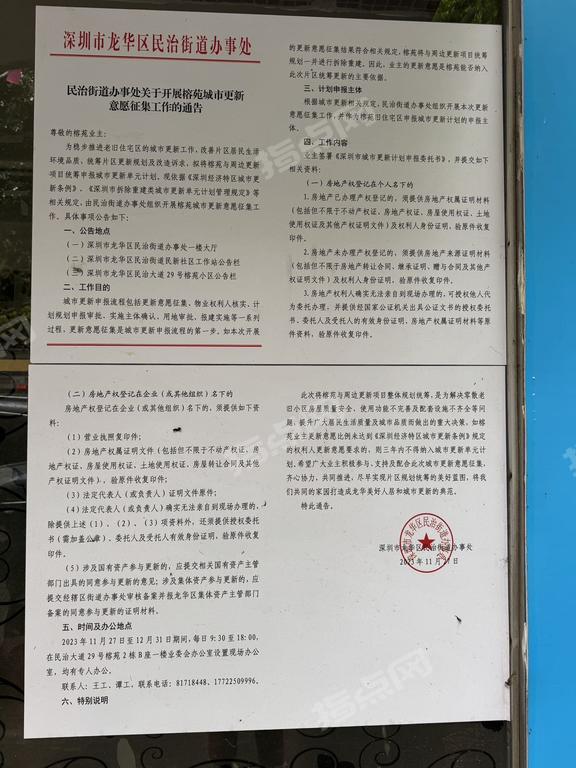 深圳市龙华区民治街道办事处
民治街道办事处关于开展榕苑城市更新
意愿征集工作的通告
尊敬的榕苑业主：
为稳步推进老旧住宅区的城市更新工作，改善片区居民生活
环境品质，统筹片区更新规划及改造诉求，拟将榕苑与周边更新
项目统筹申报城市更新计划。现依据《深圳经济特区城市更新
条例》、《深圳市拆除重建类城市更新单元计划管理规定》等
相关规定，由民治街道办事处组织开展榕苑城市更新意愿征集工
作。具体事项公告如下：
一、公告地点
（一）深圳市龙华区民治街道办事处一楼大厅
（二）深圳市龙华区民治街道民新社区工作站公告栏
（三）深圳市龙华区民治大道29号榕苑小区公告栏
二、工作目的
城市更新申报流程包括更新意愿征集、物业权利人核实、计
划规划申报审批、实施主体确认、用地审批、报建实施等一系列
过程，更新意愿征集是城市更新申报流程的第一步。如本次开展
的更新意愿征集结果符合相关规定，榕苑将与周边更新项目统筹
规划一并进行拆除重建。因此，业主的更新意愿是榕苑能否纳入
此次片区统筹更新的主要依据。
三、计划申报主体
根据城市更新相关规定，民治街道办事处组织开展本次更新
意愿征集，并作为榕苑旧住宅区申报城市更新计划的申报主
体。
四、工作内容
业主签署《深圳市城市更新计划申报委托书》，并提交如下
相关资料：
（一）房地产权登记在个人名下的
1.房地产已办理产权登记的，须提供房地产权属证明材料
（包括但不限于不动产权证、房地产权证、房屋使用权证、土地
使用权证及其他产权证明文件）及权利人身份证明，验原件收复
印件。
2.房地产未办理产权登记的，须提供房地产来源证明材料
（包括但不限于房地产转让合同、继承证明、赠与合同及其他产
权证明文件）及权利人身份证明，验原件收复印件。
3.房地产权利人确实无法亲自到现场办理的，可授权他人代
为委托办理，并提供经国家公证机关出具公证文书的授权委托
书、委托人及受托人的有效身份证明、房地产权属证明材料等原
件资料，验原件收复印件。
（二）房地产权登记在企业（或其他组织）名下的
房地产权登记在企业（或其他组织）名下的，须提供如下资
料：
（1）营业执照复印件；
（2）房地产权属证明文件（包括但不限于不动产权证、房
地产权证、房屋使用权证、土地使用权证、房屋转让合同及其他
产权证明文件），验原件收复印件；
（3）法定代表人（或负责人）证明文件原件；
（4）法定代表人（或负责人）确实无法亲自到现场办理的，
除提供上述（1）、（2）、（3）项资料外，还须提供授权委托
书（需加盖公章）、委托人及受托人有效身份证明，验原件收复
印件。
（5）涉及国有资产参与更新的，应提交相关国有资产主管
部门出具的同意参与更新的意见；涉及集体资产参与更新的，应
提交经辖区街道办事处审核备案并报龙华区集体资产主管部门
备案的同意参与更新的证明材料。
五、时间及办公地点
2023年11月27日至12月31日期间，每日9:30至18:00，
在民治大道29号榕苑2栋B座一楼业委会办公室设置现场办公
室，均有专人办公。
联系人：王工、谭工，联系电话：81718448、17722509996。
六、特别说明
此次将榕苑与周边更新项目整体规划统筹，是为解决零散老
旧小区房屋质量安全、使用功能不完善及配套设施不齐全等问
题，提升广大居民生活质量及城市品质而做出的重大决策。如榕
苑业主更新意愿比例未达到《深圳经济特区城市更新条例》规定
的权利人更新意愿要求的，则三年内不得纳入城市更新单元计
划。希望广大业主积极参与、支持及配合此次城市更新意愿征集，
齐心协力、共同推进，尽早实现片区规划统筹的美好蓝图，将我
们共同的家园打造成龙华美好人居和城市更新的典范。
特此通告。
深圳市龙华区民治街道办事处
2023年11月27日
指点网